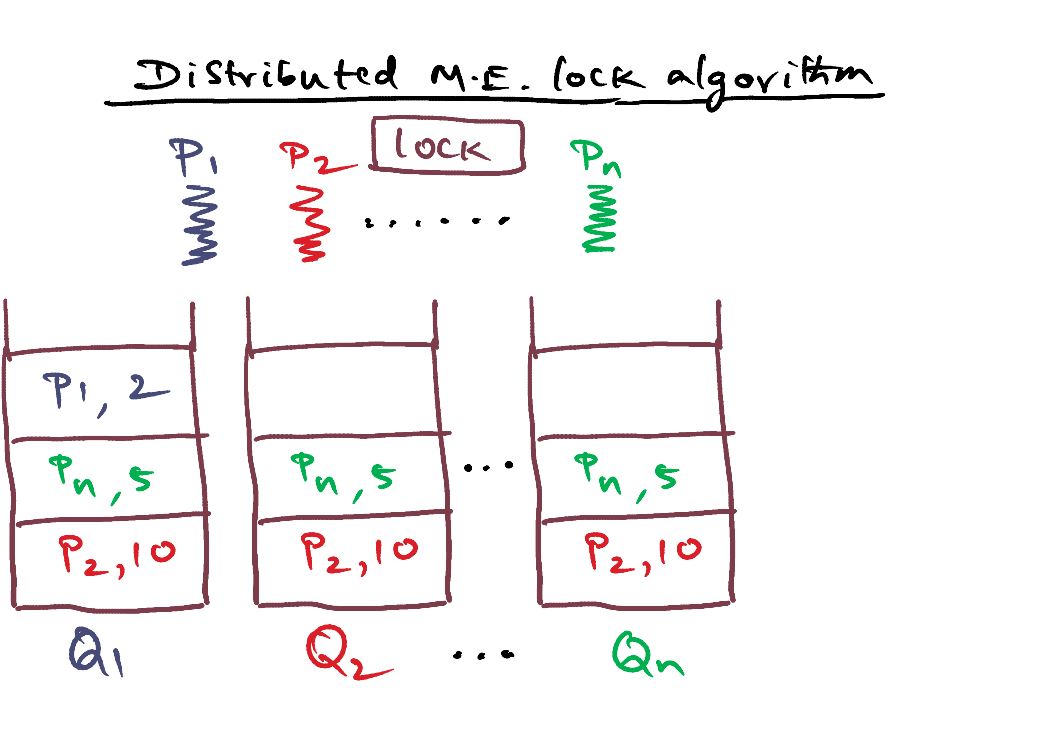 Distributed M.E. lock algorithm
P1 P2 lock Pn
......
P1, 2
Pn, 5 Pn, 5 ... Pn, 5
P2, 10 P2, 10 P2, 10
Q1 Q2 ... Qn